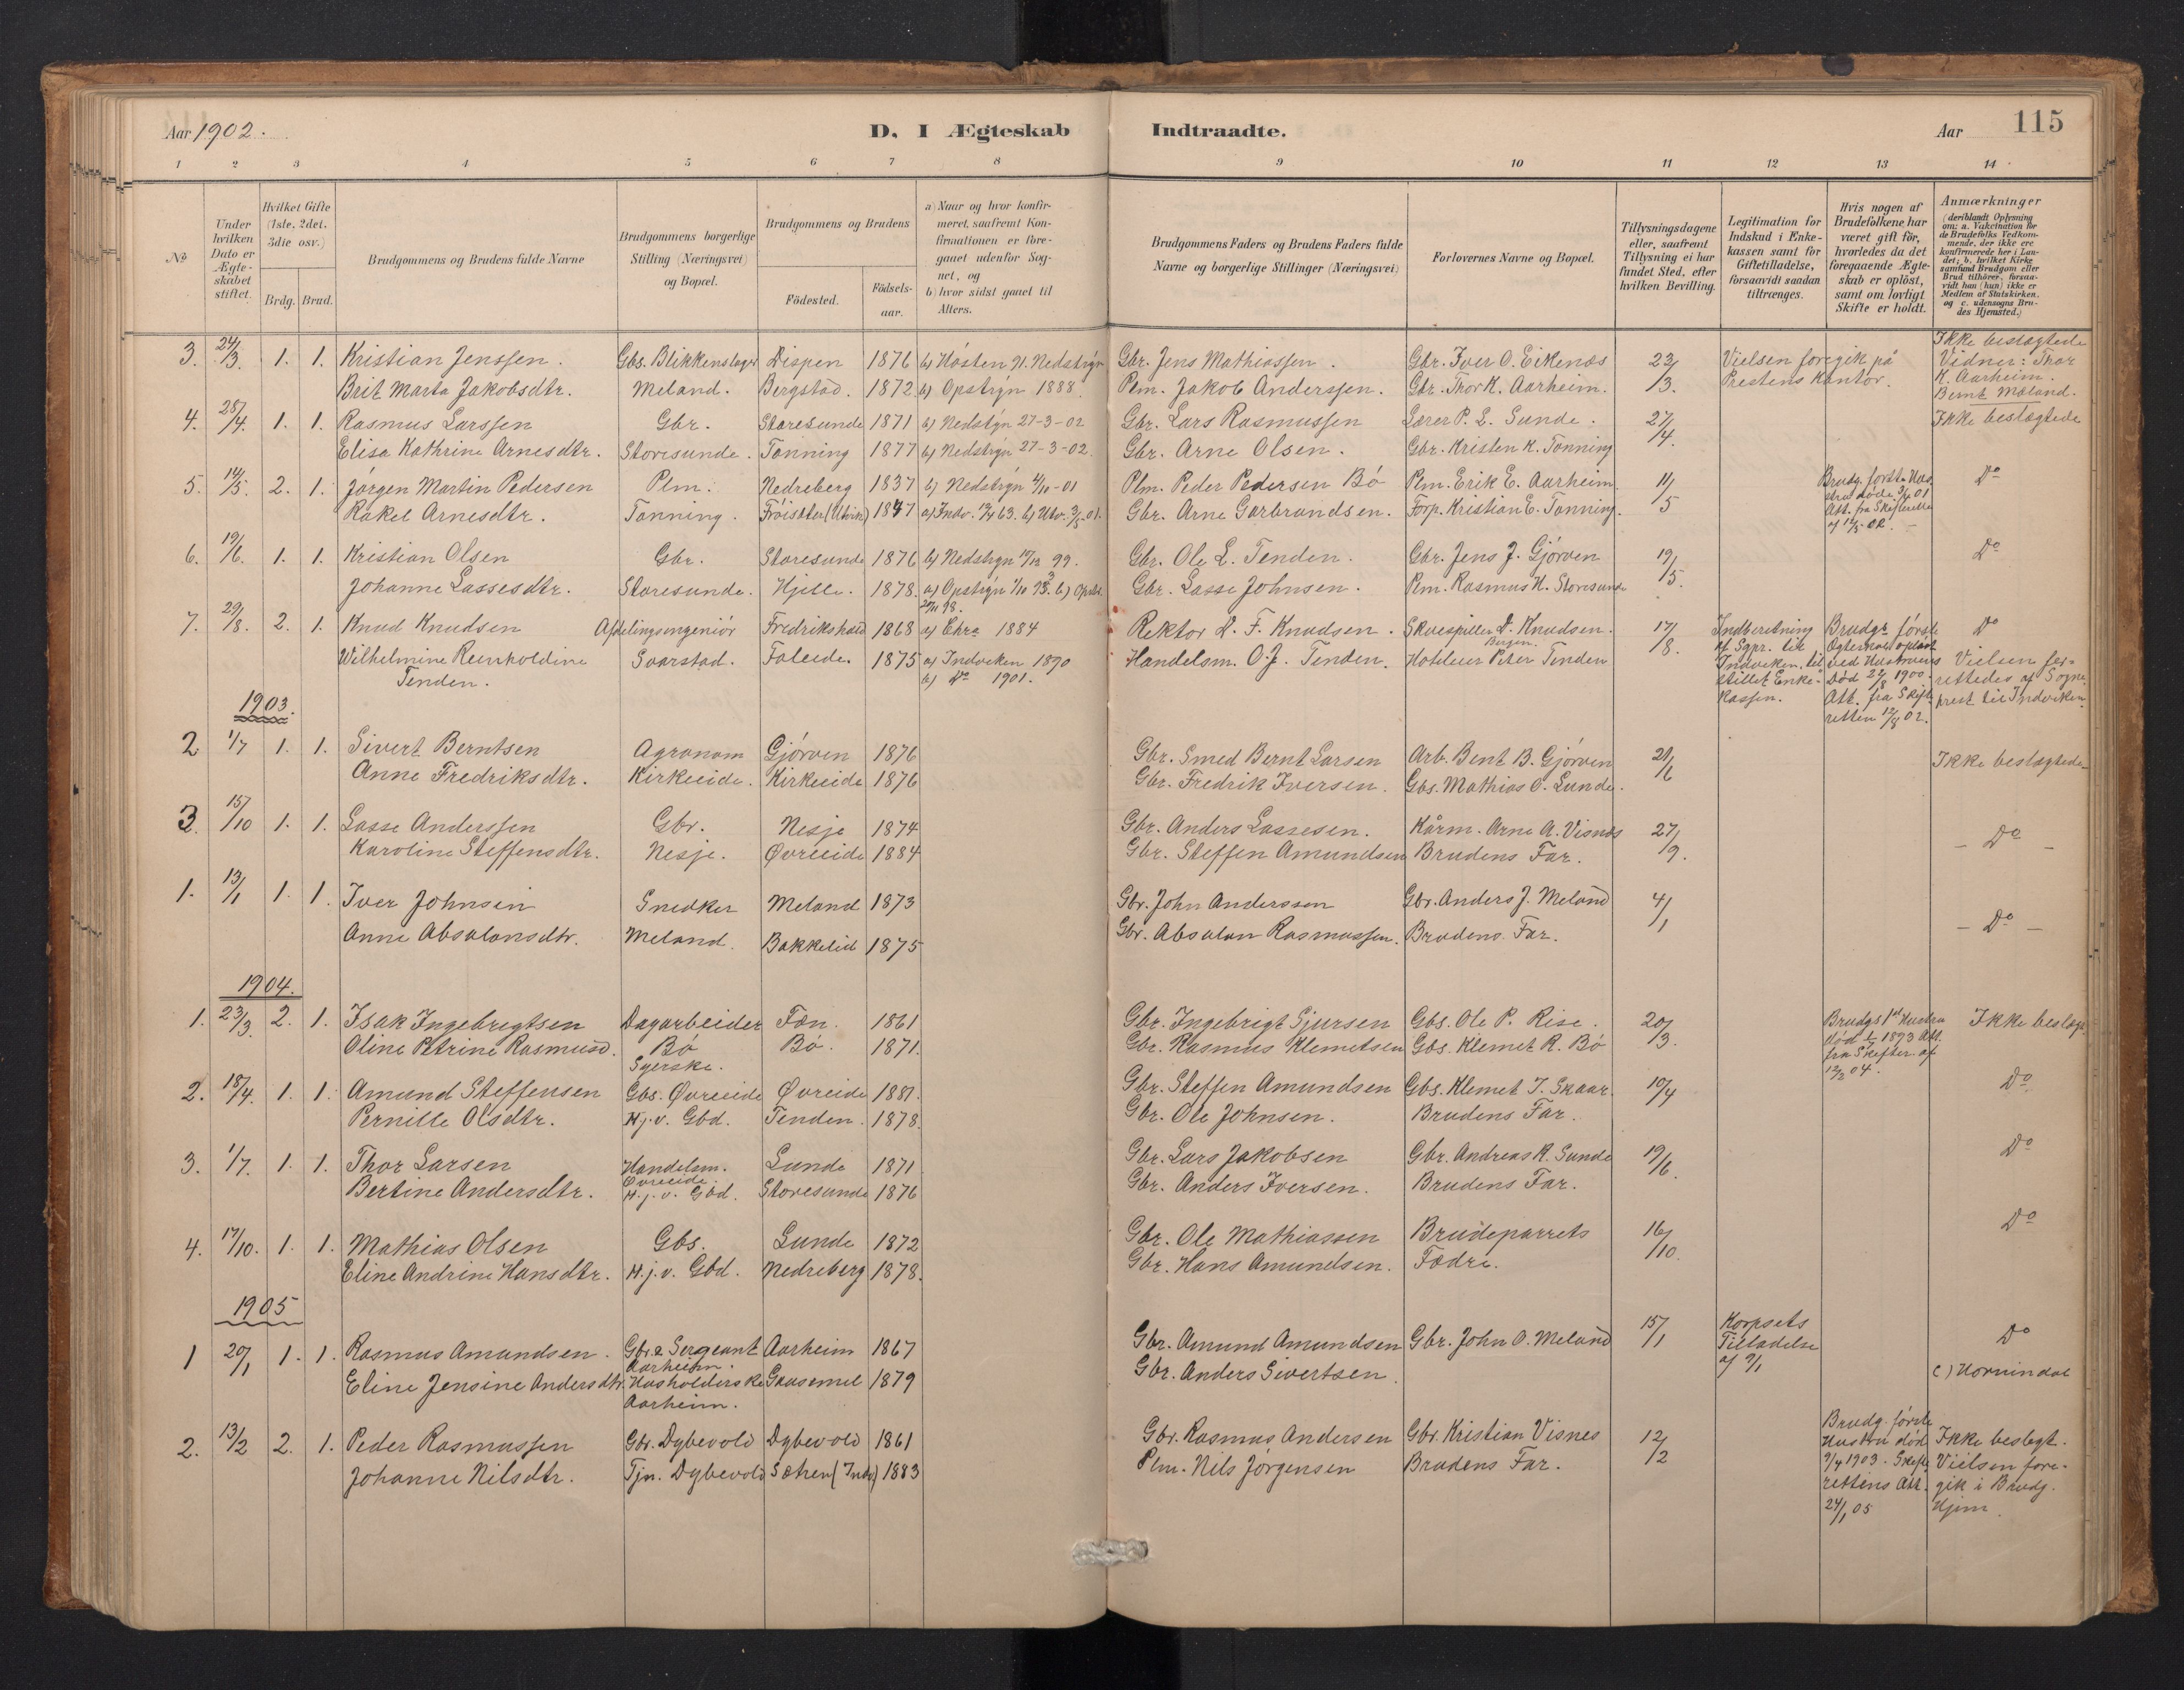 Aar 1902.
D. I Ægteskab Indtraadte.
Aar 115
1 2 3 4 5 6 7 8 9 10 11 12 13 14
No
Under hvilken Dato er Ægteskabet stiftet.
Hvilket Gifte (1ste, 2det, 3die osv.)
Brdg. Brud.
Brudgommens og Brudens fulde Navne
Brudgommens borgerlige Stilling (Næringsvei) og Bopæl.
Brudgommens og Brudens
Födested. Födselsaar.
a) Naar og hvor konfirmeret, saafremt Konfirmationen er foregaaet udenfor Sognet, og
b) hvor sidst gaaet til Alters.
Brudgommens Faders og Brudens Faders fulde Navne og borgerlige Stillinger (Næringsvei)
Forlovernes Navne og Bopæl.
Tillysningsdagene eller, saafremt Tillysning ei har fundet Sted, efter hvilken Bevilling.
Legitimation for Indskud i Enkekassen samt for Giftetilladelse, forsaavidt saadan tiltrænges.
Hvis nogen af Brudefolkene har været gift för, hvorledes da det foregaaende Ægteskab er oplöst, samt om lovligt Skifte er holdt.
Anmærkninger (deriblandt Oplysning om: a. Vakcination for de Brudefolks Vedkommende, der ikke ere konfirmerede her i Landet; b. hvilket Kirkesamfund Brudgom eller Brud tilhörer, forsaavidt han (hun) ikke er Medlem af Statskirken, og c. udensogns Brudes Hjemsted.)
3. 24/3. 1. 1. Kristian Jenssen. Gbs. Blikkenslager Dispen 1876 b) Hösten N. Nedstryn Gbr. Jens Mathiassen. Gbr. Iver O. Eikenæs 23/3. Vielsen foregik på Prestens Kontor. Ikke beslægtede Vidner: Thor K. Aarheim. Bernt Meland.
Brit Marta Jakobsdtr. Meland. Bergstad. 1872 b) Opstryn 1888. Plm. Jakob Anderssen. Gbr. Thor K. Aarheim.
4. 28/4. 1. 1. Rasmus Larssen Gbr. Storesunde 1871 b) Nedstryn 27-3-02 Gbr. Lars Rasmussen Lærer P. L. Sunde. 27/4. Ikke beslægtede
Elisa Kathrine Arnesdtr. Storesunde. Tonning 1877 b) Nedstryn 27-3-02. Gbr. Arne Olsen. Gbr. Kristen K. Tonning
5. 14/5. 2. 1. Jörgen Martin Pedersen Plm. Nedreberg 1837 b) Nedstryn 4/10-01 Plm. Peder Pedersen Bö Plm. Erik E. Aarheim. 11/5 Brudg. første Hustru døde 01 Att. fra Skifteretten af 02. Do
Rakel Arnesdtr. Tonning. (Utvik) 1847 Gbr. Arne Garbrandsen. Forp. Kristian E. Tonning.
6. 19/6. 1. 1. Kristian Olsen Gbr. Storesunde 1876 b) Nedstryn 99. Gbr. Ole L. Tenden. Gbr. Jens J. Gjörven 19/5. Do
Johanne Lassesdtr. Storesunde. Hjelle. 1878. a) Opstryn 1/10 93. b) Opstr. 98. Gbr. Lasse Johnsen. Plm. Rasmus H. Storesunde
7. 29/8. 2. 1. Knud Knudsen Afdelingsingeniör Fredrikshald 1868 a) Chra 1884 Rektor K. F. Knudsen. Skuespiller D. Knudsen. Bergen. 17/8. Indberetning af Sgpr. til Indviken, tilstillet Enkekassen. Brudgs første Egteskab opløst ved Hustruens Død 22/8 1900. Att. fra Skifteretten 12/8 02. Do Vielsen forrettedes af Sogneprest til Indviken.
Wilhelmine Reinholdine Tenden. Svarstad. Faleide. 1875 a) Indviken 1890 b) Do 1901. Handelsm. O. J. Tenden. Hoteleier Peter Tenden
1903.
2 1/7 1. 1. Sivert Berntsen Agronom Gjörven 1876 Gbr. Smed Bernt Larsen Arb. Bent B. Gjörven 21/6 Ikke beslægtede
Anne Fredriksdtr. Kirkeeide. Kirkeeide 1876 Gbr. Fredrik Iversen. Gbs. Mathias O. Lunde.
3. 15/10 1. 1. Lasse Anderssen Gbr. Nesje 1874 Gbr. Anders Lassesen. Kårm. Arne A. Visnes 27/9. – Do –
Karoline Steffensdtr. Nesje. Øvreeide 1884 Gbr. Steffen Amundsen Brudens Far.
1. 13/1 1. 1. Iver Johnsen Snedker Meland 1873 Gbr. John Anderssen Gbr. Anders J. Meland 4/1 – Do –
Anne Absalonsdtr. Meland. Bakkelid 1875 Gbr. Absalon Rasmussen. Brudens Far.
1904.
1. 23/3. 2. 1. Isak Ingebrigtsen Dagarbeider Fön. 1861 Gbr. Ingebrigt Sjursen Gbs. Ole P. Rise. 20/3. Brudgs 1st Hustru død 1893 Att. fra Skifter. af 12/2 04. Ikke beslægt.
Oline Petrine Rasmusd. Bö Syerske. Bö. 1871. Gbr. Rasmus Klemetsen Gbs. Klemet R. Bö
2. 18/4. 1. 1. Amund Steffensen Gbs. Øvreeide Øvreide 1881. Gbr. Steffen Amundsen Gbs. Klemet T. Skaar. 10/4 Do
Pernille Olsdtr. H.j.v. Gbd. Tenden. 1878. Gbr. Ole Johnsen. Brudens Far.
3. 1/7. 1. 1. Thor Larsen Handelsm. Øvreeide. Lunde 1871 Gbr. Lars Jakobsen Gbr. Andreas R. Sunde 19/6. Do
Bertine Andersdtr. H.j.v. Gbd. Storesunde 1876 Gbr. Anders Iversen. Brudens Far.
4. 17/10. 1. 1. Mathias Olsen Gbs. Lunde 1872 Gbr. Ole Mathiassen Brudeparrets 16/10. Do
Eline Andrine Hansdtr. H.j.v. Gbd. Nedreberg 1878. Gbr. Hans Amundsen. Fædre.
1905
1 20/1 1. 1. Rasmus Amundsen. Gbr. & Sergeant Aarheim. Aarheim 1867 Gbr. Amund Amundsen Gbr. John O. Meland 15/1 Korpsets Tilladelse af 9/1 Do
Eline Jensine Andersdtr. Husholderske Aarheim. Gausemel 1879 Gbr. Anders Sivertsen. c) Hornindal
2. 13/2 2. 1. Peder Rasmussen Gbr. Dybevold Dybevold 1861 Gbr. Rasmus Andersen Gbr. Kristian Visnes 12/2 Brudg. første Hustru død 9/4 1903. Skifterettens Att. 24/1 05 Ikke beslegt. Vielsen foregik i Brudg. Hjem.
Johanne Nilsdtr. Tjn. Dybevold Sætren (Indv) 1883 Plm. Nils Jörgensen Brudens Far.